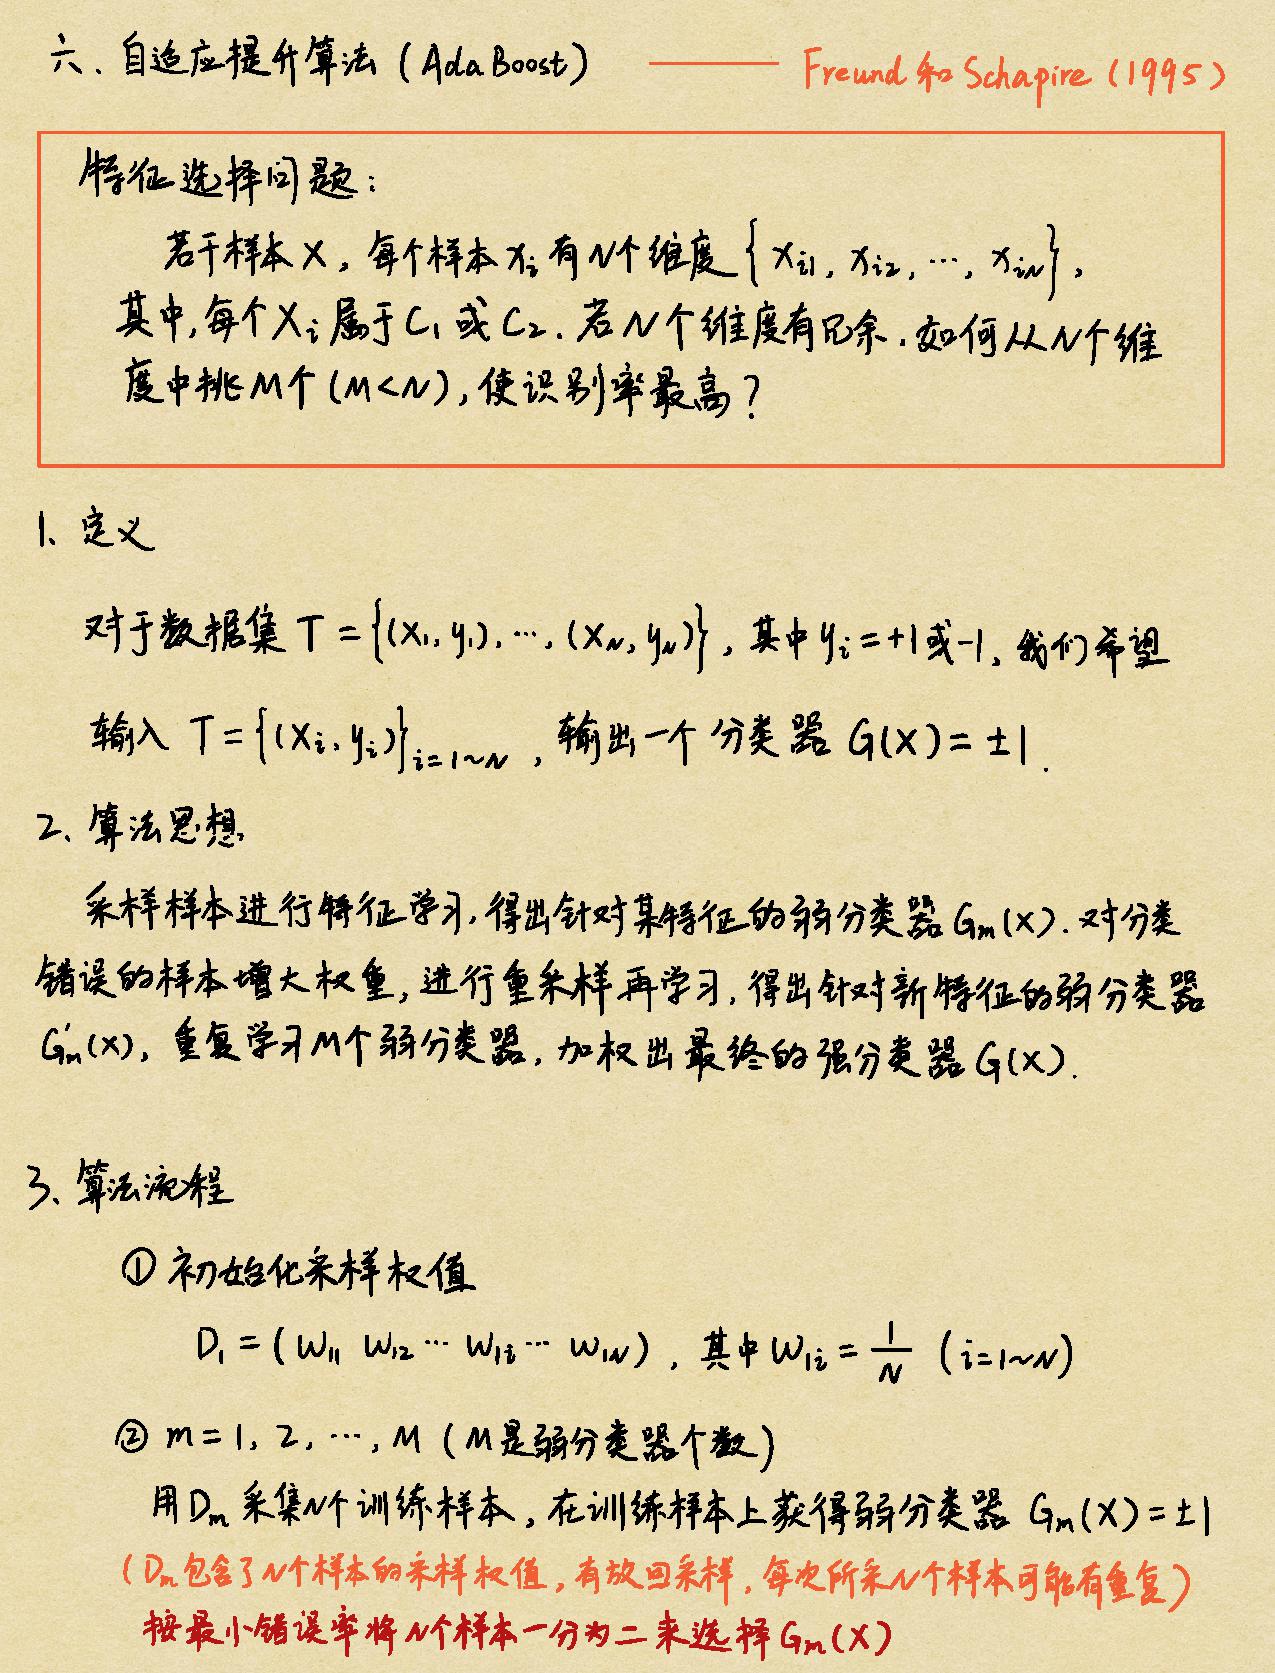 六、自适应提升算法 (AdaBoost) —— Freund 和 Schapire (1995)
特征选择问题:
若干样本 X, 每个样本 xᵢ 有 N个维度 {xᵢ₁, xᵢ₂, ⋯, xᵢN},
其中, 每个 Xᵢ 属于 C₁ 或 C₂. 若 N 个维度有冗余. 如何从N个维
度中挑M个 (M<N), 使识别率最高?
1、定义
对于数据集 T = {(X₁, y₁), ⋯, (X_N, y_N)}, 其中 yᵢ = +1或-1, 我们希望
输入 T = {(Xᵢ, yᵢ)}ᵢ₌₁~N , 输出一个分类器 G(X) = ±1.
2、算法思想
采样样本进行特征学习, 得出针对某特征的弱分类器 Gm(X). 对分类
错误的样本增大权重, 进行重采样再学习, 得出针对新特征的弱分类器
Gm'(X), 重复学习M个弱分类器, 加权出最终的强分类器 G(X).
3、算法流程
① 初始化采样权值
D₁ = (W₁₁ W₁₂ ⋯ W₁ᵢ ⋯ W₁N), 其中 W₁ᵢ = 1/N (i=1~N)
② m = 1, 2, ⋯, M (M是弱分类器个数)
用Dm 采集N个训练样本, 在训练样本上获得弱分类器 Gm(X) = ±1
(Dm包含了N个样本的采样权值, 有放回采样, 每次所采N个样本可能有重复)
按最小错误率将N个样本一分为二来选择Gm(X)